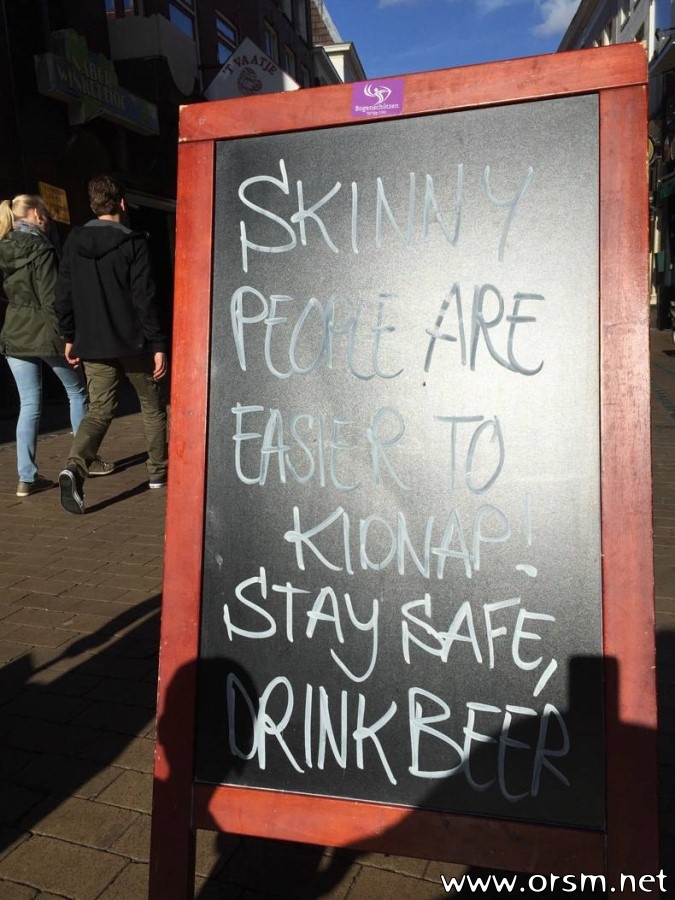 'T VAATJE
Bogenschützen
SKINNY
PEOPLE ARE
EASIER TO
KIDNAP!
STAY SAFE,
DRINK BEER
www.orsm.net